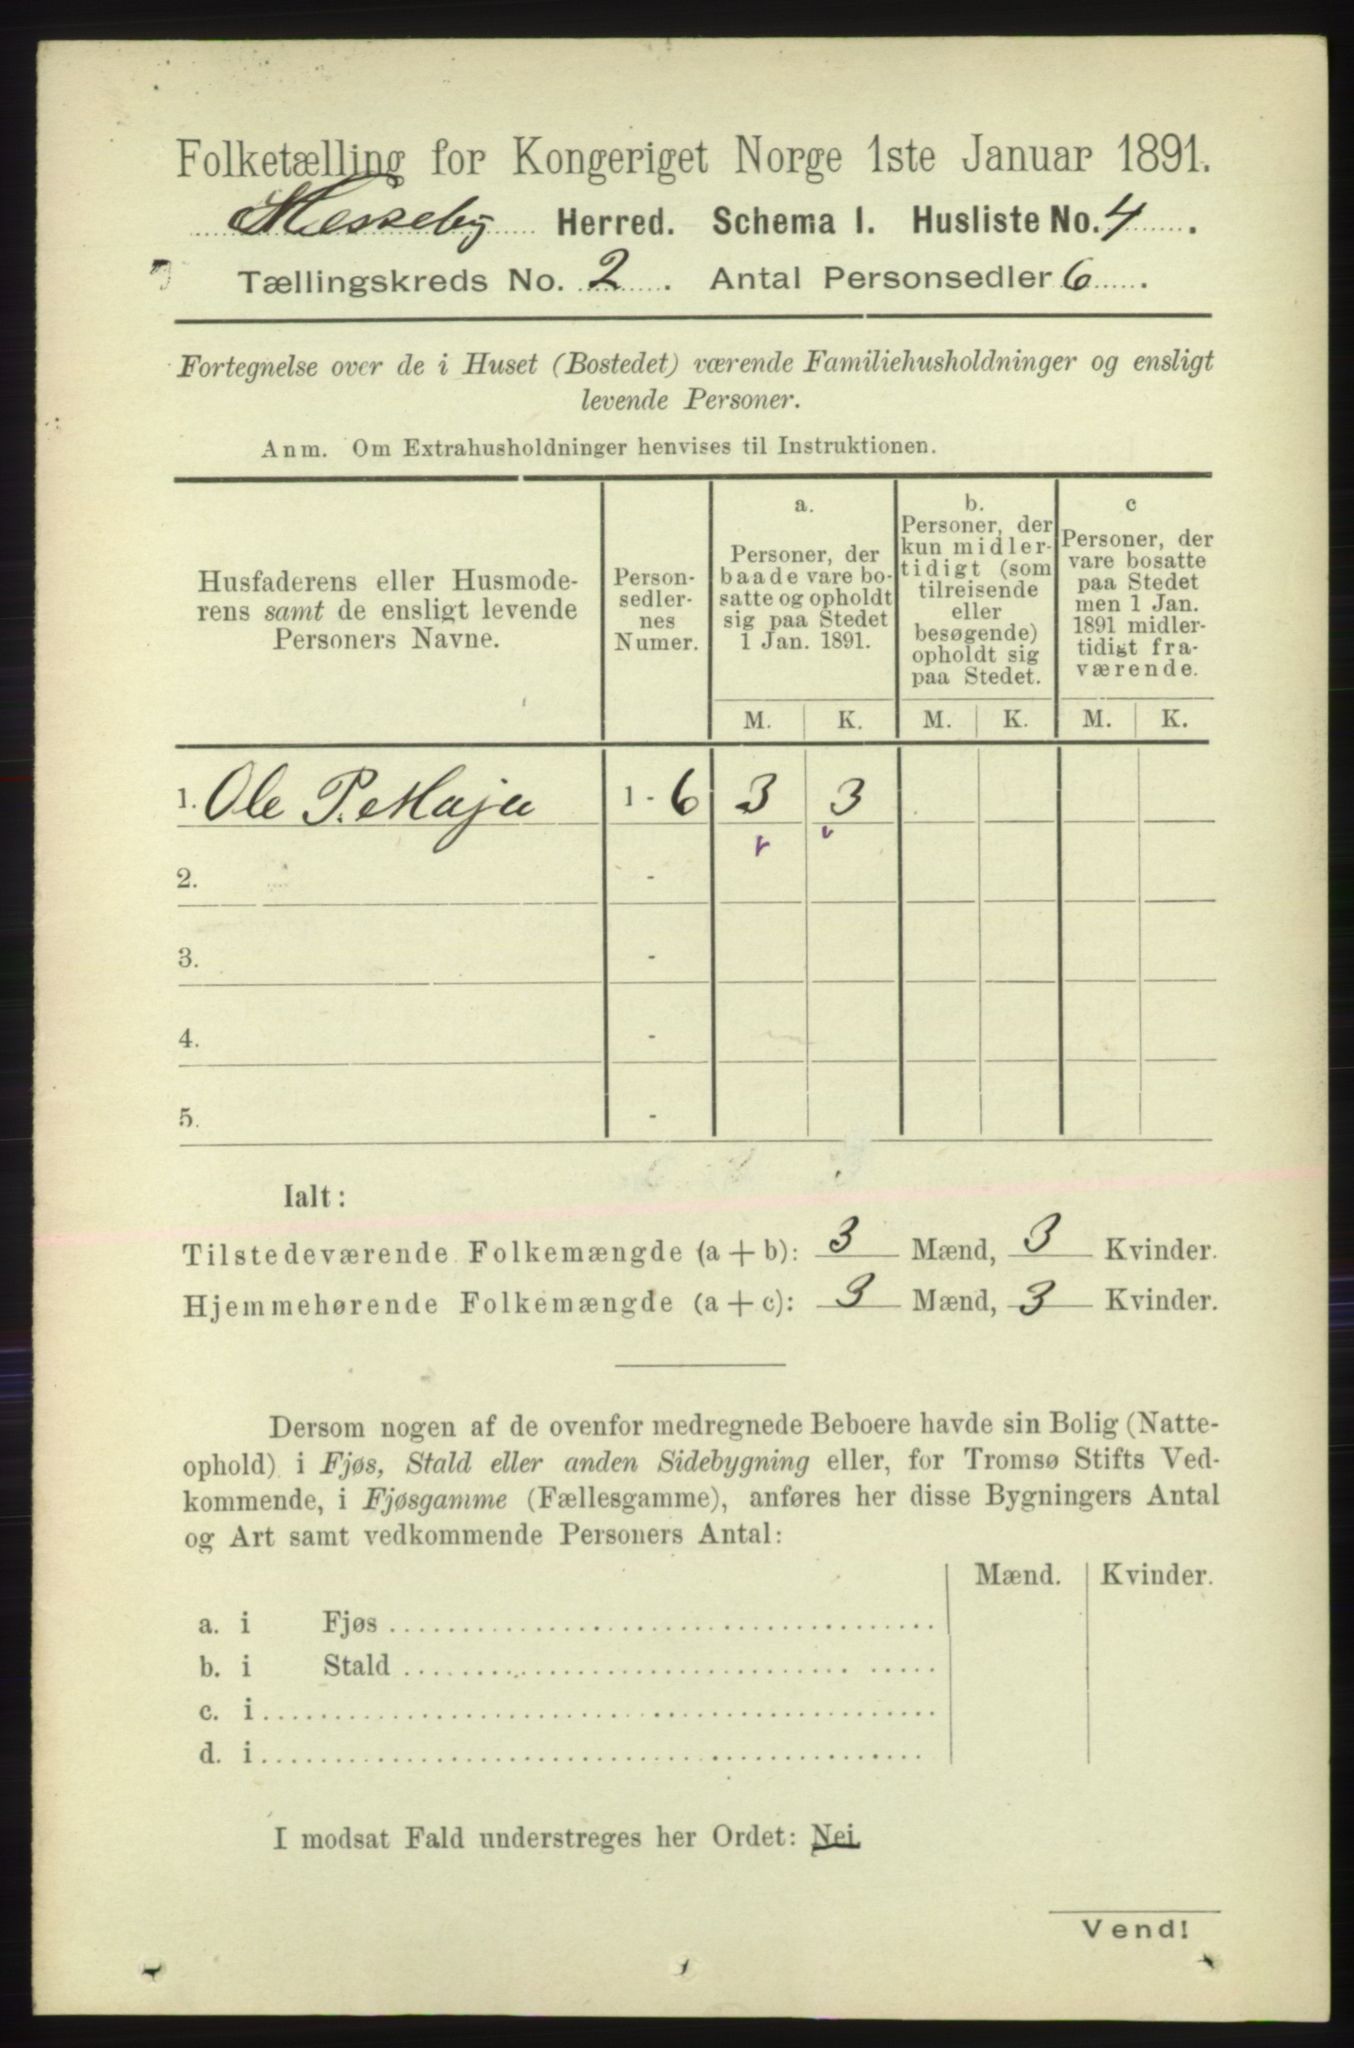 Folketælling for Kongeriget Norge 1ste Januar 1891.
Nesseby Herred. Schema I. Husliste No. 4.
Tællingskreds No. 2. Antal Personsedler 6.
Fortegnelse over de i Huset (Bostedet) værende Familiehusholdninger og ensligt
levende Personer.
Anm. Om Extrahusholdninger henvises til Instruktionen.
Husfaderens eller Husmode-
rens samt de ensligt levende
Personers Navne.
Person-
sedler-
nes
Numer.
a.
Personer, der
baade vare bo-
satte og opholdt
sig paa Stedet
1 Jan. 1891.
b.
Personer, der
kun midler-
tidigt (som
tilreisende
eller
besøgende)
opholdt sig
paa Stedet.
c
Personer, der
vare bosatte
paa Stedet
men 1 Jan.
1891 midler-
tidigt fra-
værende.
M. K. M. K. M. K.
1. Ole P. Maja 1 - 6 3 3
2. -
3. -
4. -
5. -
Ialt:
Tilstedeværende Folkemængde (a + b): 3 Mænd, 3 Kvinder.
Hjemmehørende Folkemængde (a + c): 3 Mænd, 3 Kvinder.
Dersom nogen af de ovenfor medregnede Beboere havde sin Bolig (Natte-
ophold) i Fjøs, Stald eller anden Sidebygning eller, for Tromsø Stifts Ved-
kommende, i Fjøsgamme (Fællesgamme), anføres her disse Bygningers Antal
og Art samt vedkommende Personers Antal:
Mænd. Kvinder.
a. i Fjøs
b. i Stald
c. i
d. i
I modsat Fald understreges her Ordet: Nei
Vend!